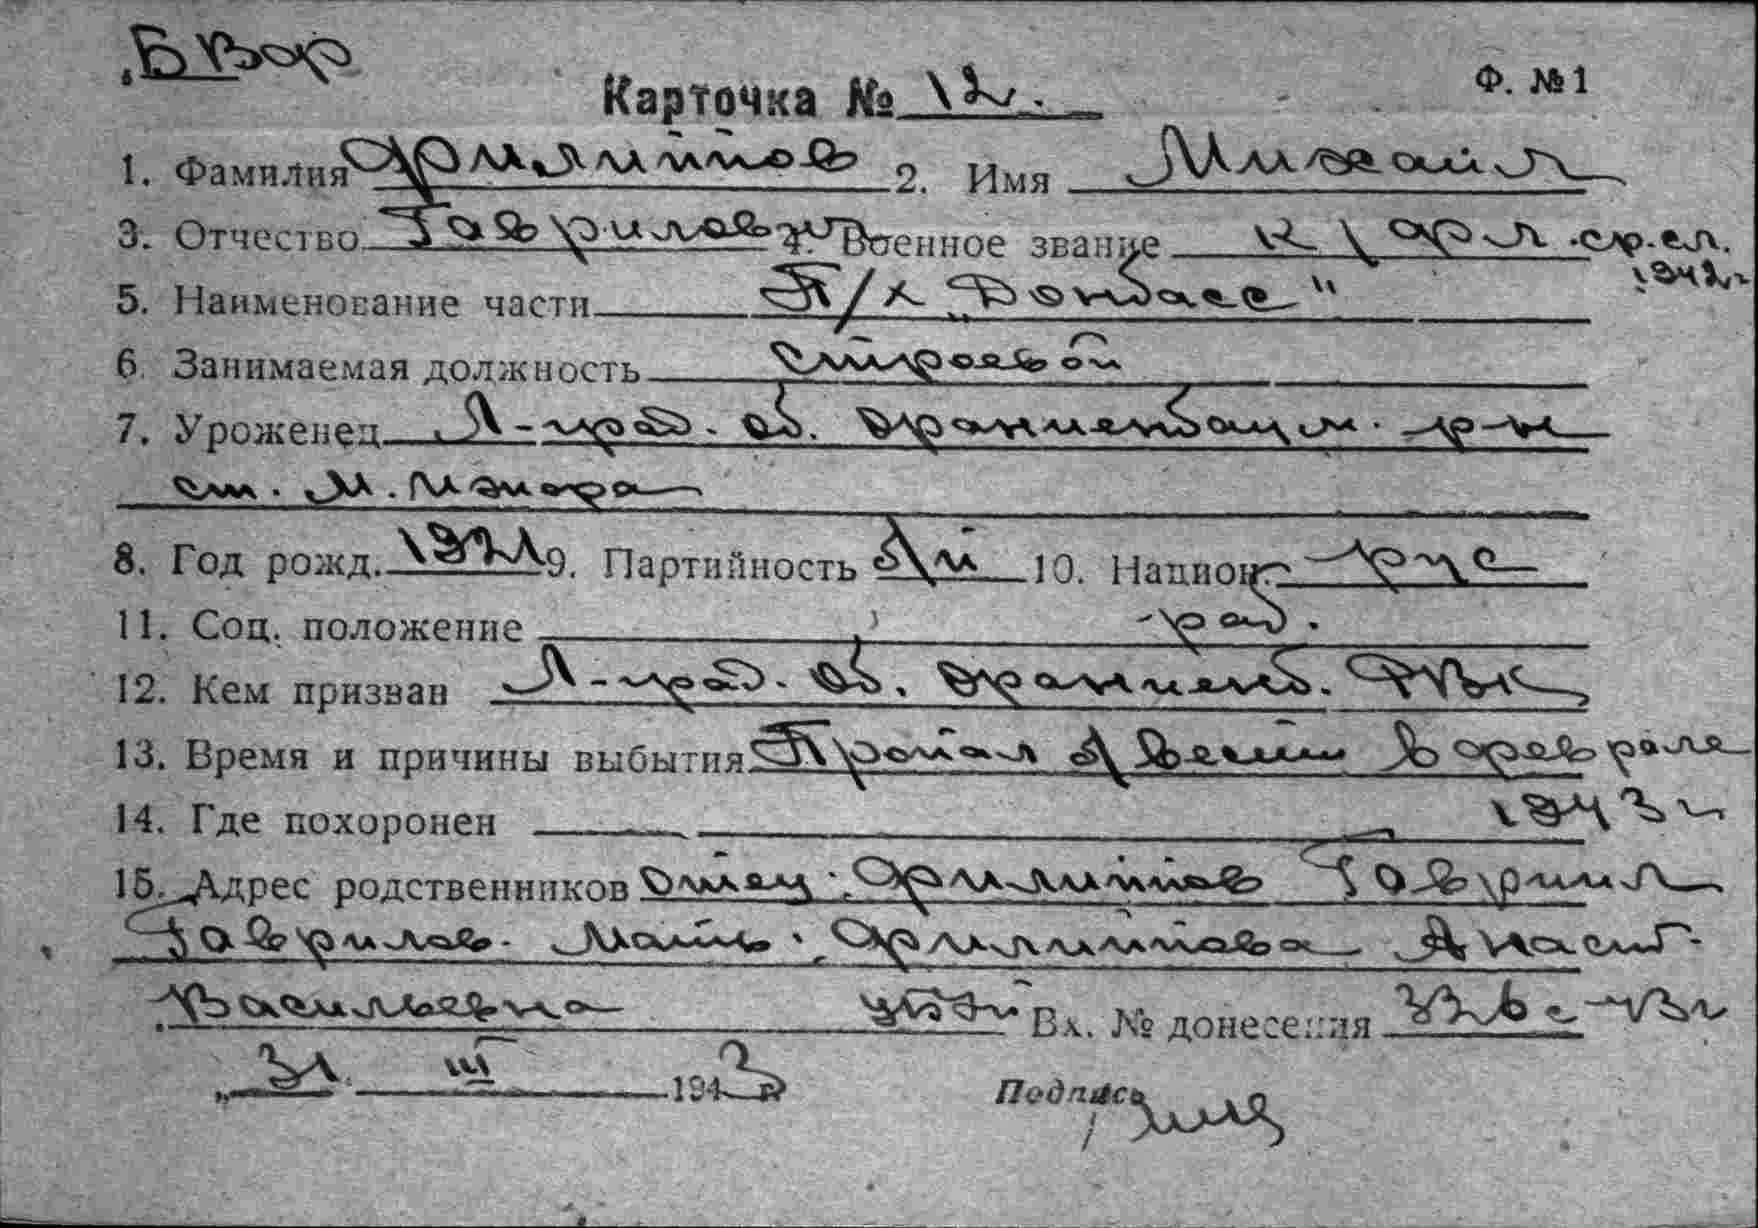 Б Вор
Карточка № 12. Ф. №1
1. Фамилия Филиппов 2. Имя Михаил
3. Отчество Гаврилович 4. Военное звание к/фл. ср.сл. 1942г
5. Наименование части П/х „Донбасс"
6. Занимаемая должность строевой
7. Уроженец Л-град. об. Ораниенбаум. р-н
ст. М. Ижора
8. Год рожд. 1921 9. Партийность б/п 10. Национ. рус
11. Соц. положение раб.
12. Кем призван Л-град. об. Ораниенб. РВК
13. Время и причины выбытия Пропал б/вести в феврале
14. Где похоронен 1943 г
15. Адрес родственников отец: Филиппов Гавриил
Гаврилов. Мать: Филиппова Анаст.
Васильевна Вх. № донесения 326с-43г
„31 III 1943 г.
Подпись